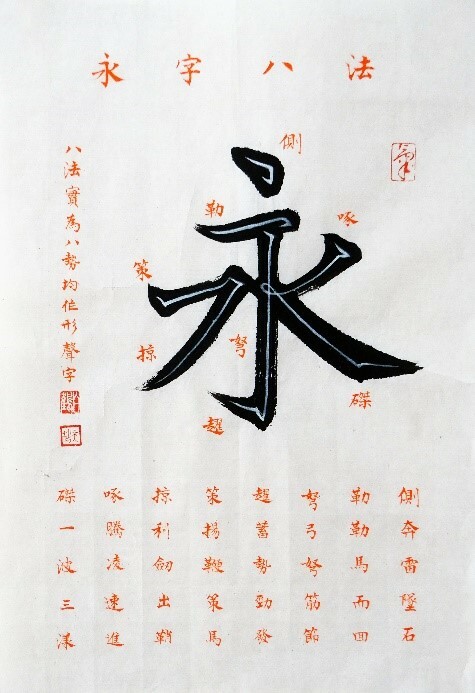 永字八法
永
側
勒
啄
策
弩
掠
磔
趯
八法實為八勢均作形聲字
側奔雷墜石
勒勒馬而回
弩弓弩筋節
趯蓄勢勁發
策揚鞭策馬
掠利劍出鞘
啄騰凌速進
磔一波三漾